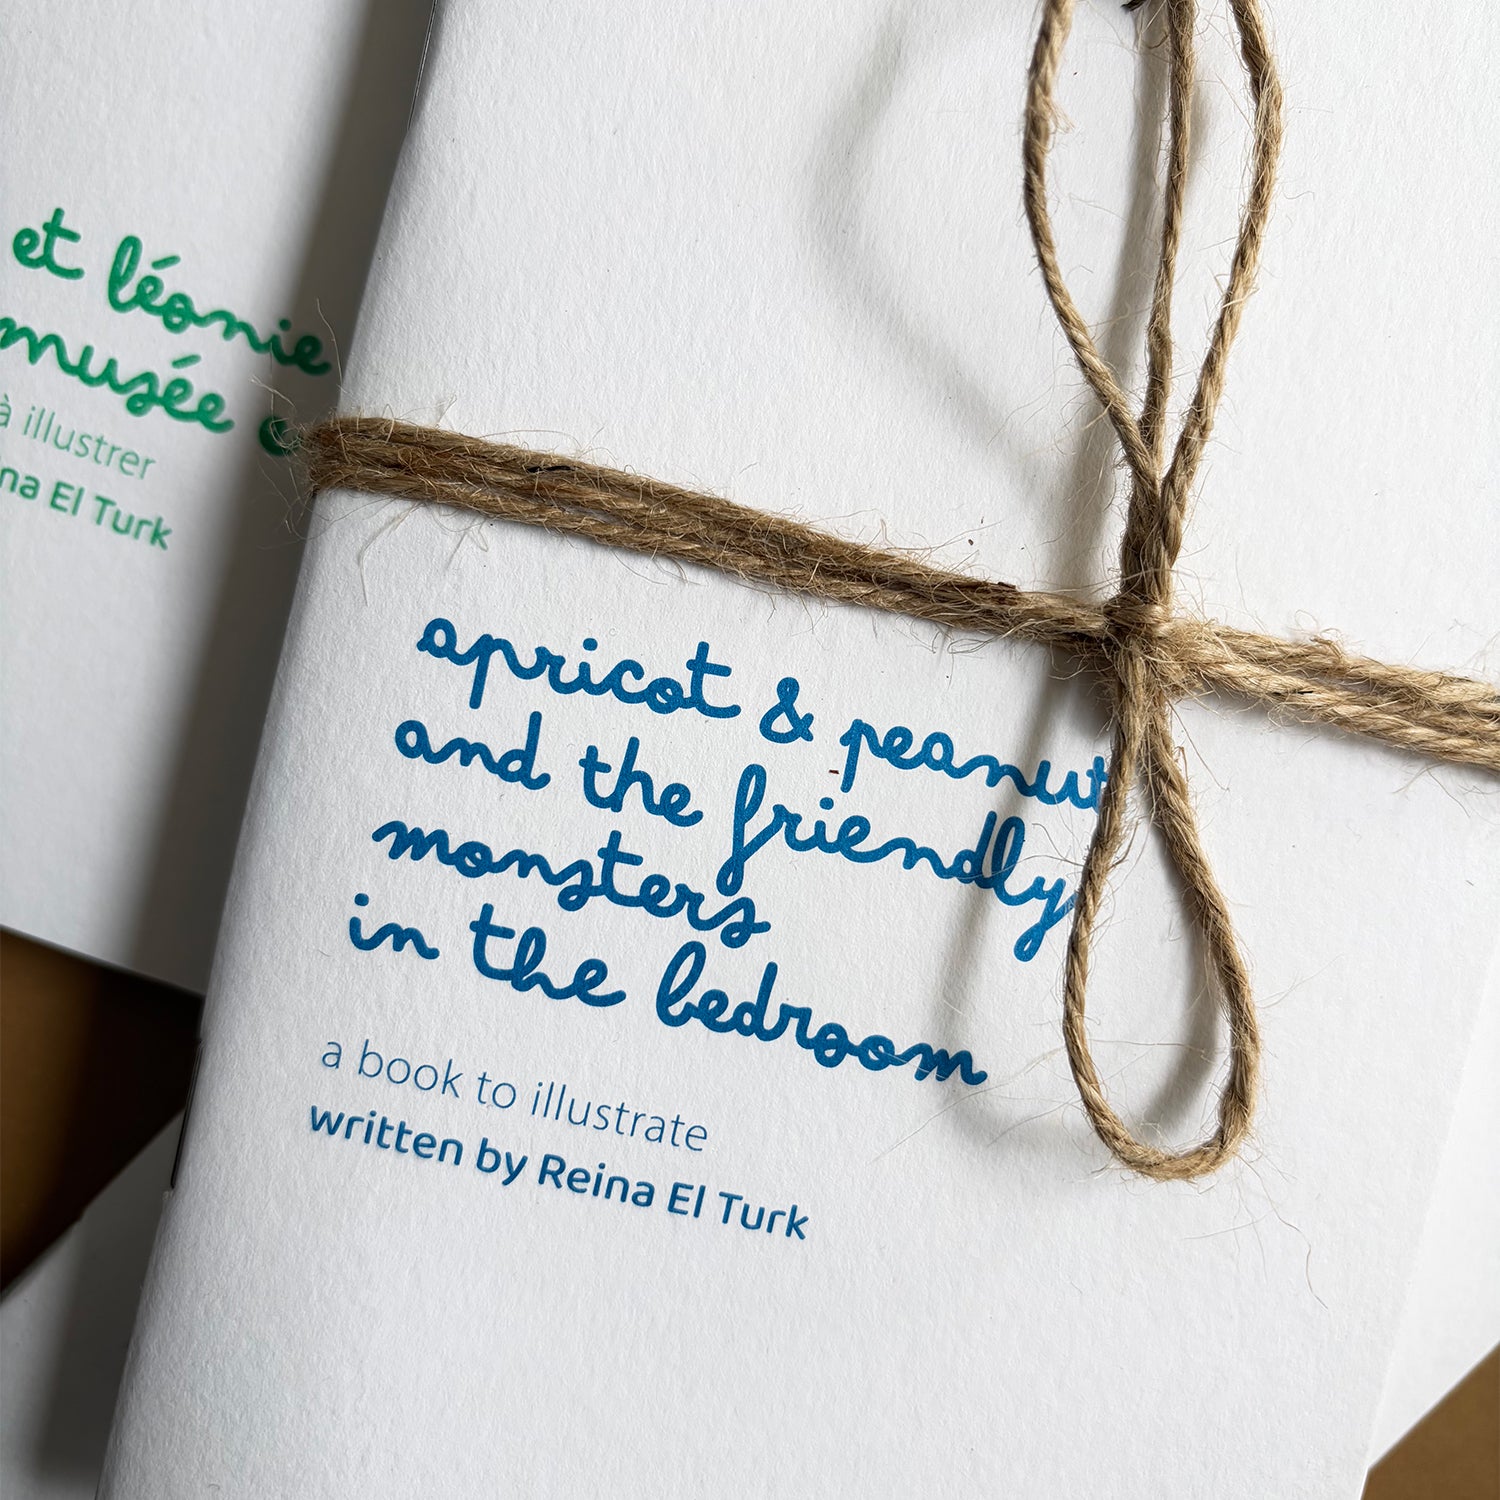 et léonie
musée
à illustrer
El Turk
apricot & peanut
and the friendly
monsters
in the bedroom
a book to illustrate
written by Reina El Turk